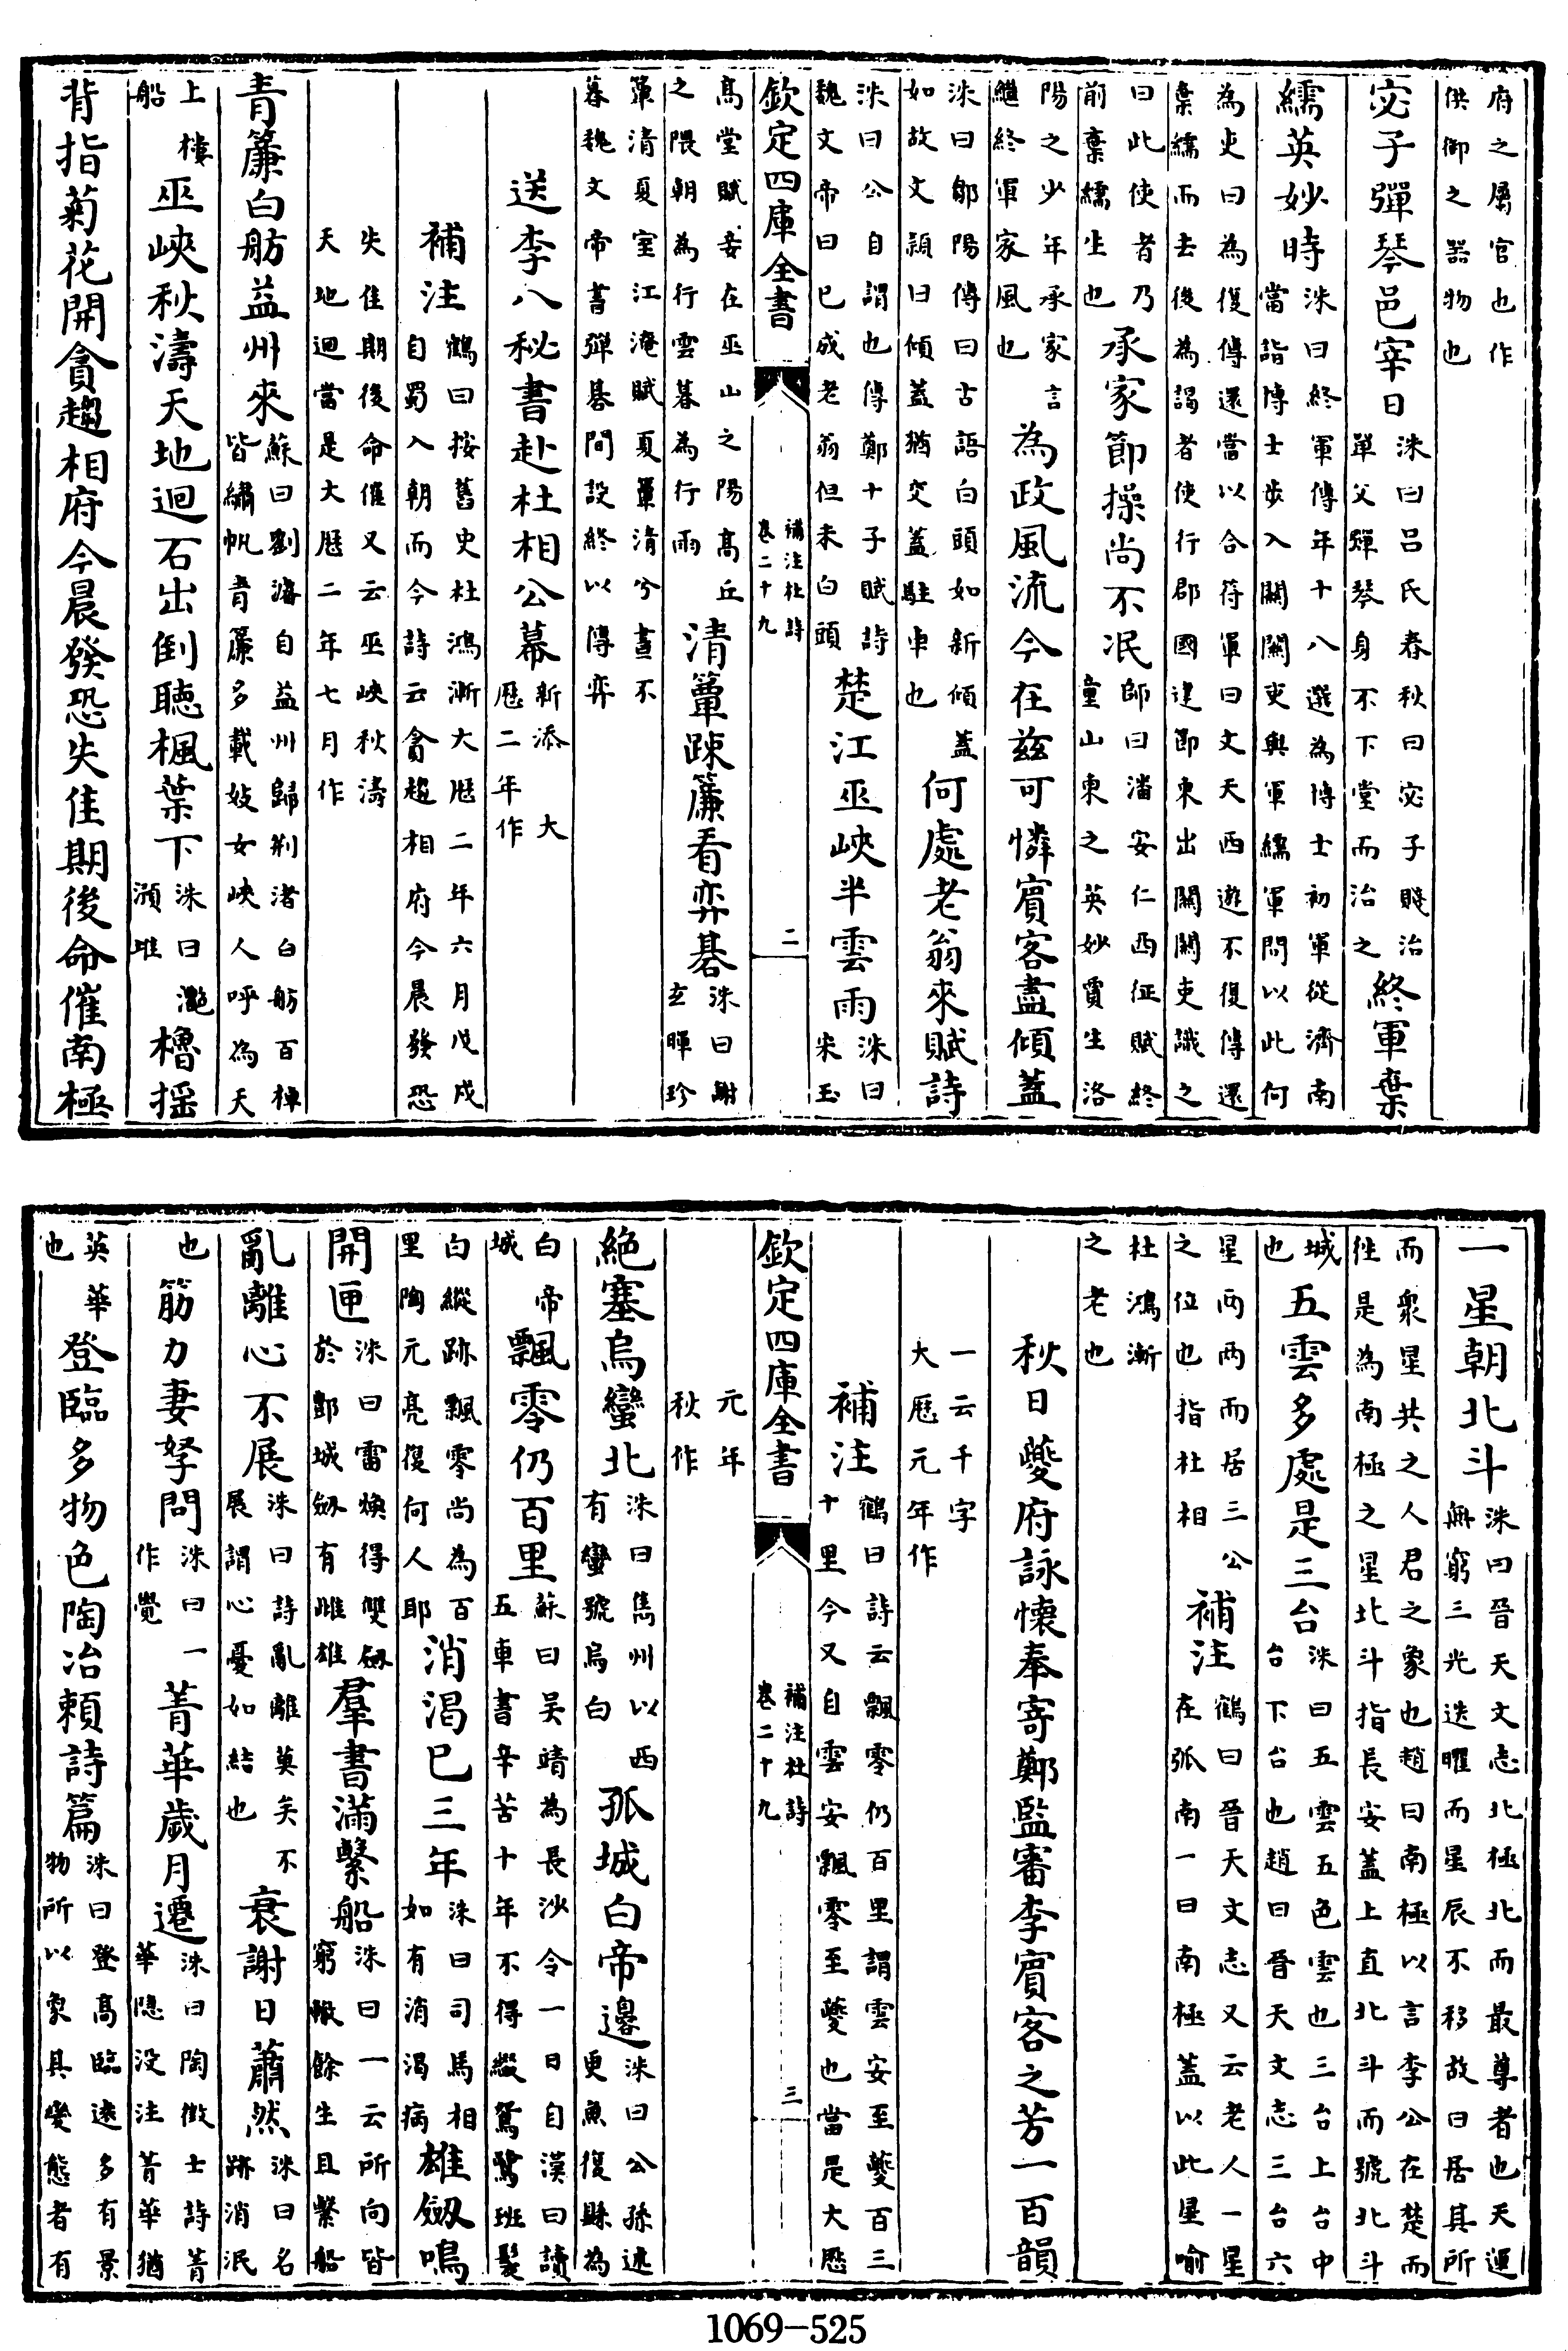 府之屬官也作
供御之器物也
宓子彈琴邑宰日洙曰吕氏春秋曰宓子賤治單父彈琴身不下堂而治之終軍棄
繻英妙時洙曰終軍傳年十八選為博士初軍從濟南當詣博士步入關關吏與軍繻軍問以此何
為吏曰為復傳還當以合符軍曰文天西遊不復傳還棄繻而去後為謁者使行郡國建節東出關關吏識之
曰此使者乃前棄繻生也承家節操尚不泯師曰潘安仁西征賦終童山東之英妙賈生洛
陽之少年承家言繼終軍家風也為政風流今在兹可憐賔客盡傾蓋
洙曰鄒陽傳曰古語白頭如新傾蓋如故文頴曰傾蓋猶交蓋駐車也何處老翁來賦詩
洙曰公自謂也傳鄭十子賦詩魏文帝曰已成老翁但未白頭楚江巫峽半雲雨洙曰宋玉
欽定四庫全書 補注杜詩卷二十九 二
高堂賦妾在巫山之陽高丘之隈朝為行雲暮為行雨清簟踈簾看弈碁洙曰謝玄暉珍
簟清夏室江淹賦夏簟清兮晝不暮魏文帝書彈碁間設終以傳弈
送李八秘書赴杜相公幕新添 大歴二年作
補注鶴曰按舊史杜鴻漸大歴二年六月戊戍自蜀入朝而今詩云貪趨相府今晨發恐
失佳期後命催又云巫峽秋濤天地迴當是大歴二年七月作
青簾白舫益州來蘇曰劉濬自益州歸荆渚白舫百棹皆繡帆青簾多載妓女峽人呼為天
上樓船巫峽秋濤天地迴石出倒聴楓葉下洙曰灔澦堆櫓揺
背指菊花開貪趨相府今晨發恐失佳期後命催南極
一星朝北斗洙曰晉天文志北極北而最尊者也天運無窮三光迭曜而星辰不移故曰居其所
而衆星共之人君之象也趙曰南極以言李公在楚而往是為南極之星北斗指長安蓋上直北斗而號北斗
城也五雲多處是三台洙曰五雲五色雲也三台上台中台下台也趙曰晉天文志三台六
星兩兩而居三公之位也指杜相補注鶴曰晉天文志又云老人一星在弧南一曰南極蓋以此星喻
杜鴻漸之老也
秋日夔府詠懷奉寄鄭監審李賔客之芳一百韻
一云千字大歴元年作
補注鶴曰詩云飄零仍百里謂雲安至夔百三十里今又自雲安飄零至夔也當是大歴
欽定四庫全書 補注杜詩卷二十九 三
元年秋作
絶塞烏蠻北洙曰雋州以西有蠻號烏白孤城白帝邊洙曰公孫述更魚復縣為
白帝城飄零仍百里蘇曰吴靖為長沙令一日自漢曰讀五車書辛苦十年不得綴鴛鷺班髮
白縱跡飄零尚為百里陶元亮復何人耶消渴已三年洙曰司馬相如有消渴病雄劔鳴
開匣洙曰雷煥得雙劔於酆城劔有雌雄羣書滿繫船洙曰一云所向皆窮轍餘生且繫船
亂離心不展洙曰詩亂離莫矣不展謂心憂如結也衰謝日蕭然洙曰名跡消泯
也筋力妻孥問洙曰一作覺菁華歳月遷洙曰陶徵士詩菁華隠没注菁華猶
英華也登臨多物色陶冶頼詩篇洙曰登高臨逺多有景物所以象具變態者有
1069-525